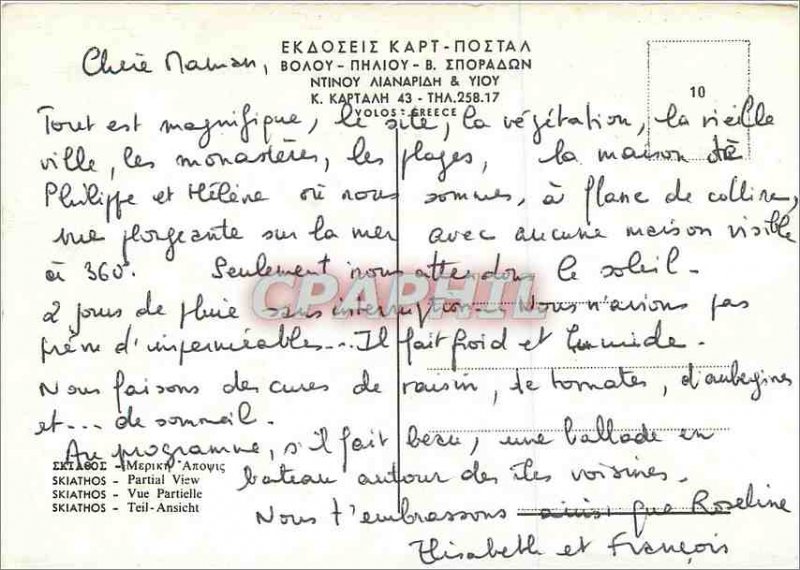 ΕΚΔΟΣΕΙΣ ΚΑΡΤ-ΠΟΣΤΑΛ
ΒΟΛΟΥ-ΠΗΛΙΟΥ-Β. ΣΠΟΡΑΔΩΝ
ΝΤΙΝΟΥ ΛΙΑΝΑΡΙΔΗ & ΥΙΟΥ
Κ. ΚΑΡΤΑΛΗ 43 - ΤΗΛ.258.17
VOLOS - GREECE
10
Chère Maman,
Tout est magnifique, le site, la végétation, la vieille
ville, les monastères, les plages, la maison de
Philippe et Hélène où nous sommes, à flanc de colline,
vue plongeante sur la mer avec aucune maison visible
à 360°. Seulement nous attendons le soleil -
2 jours de pluie sans interruption... Nous n'avions pas
prévu d'imperméables... Il fait froid et humide.
Nous faisons des cures de raisin, de tomates, d'aubergines
et... de sommeil.
Au programme, s'il fait beau, une ballade en
bateau autour des îles voisines.
Nous t'embrassons ainsi que Roseline
Elisabeth et François
ΣΚΙΑΘΟΣ - Μερική Άποψις
SKIATHOS - Partial View
SKIATHOS - Vue Partielle
SKIATHOS - Teil-Ansicht
CPAPHIL